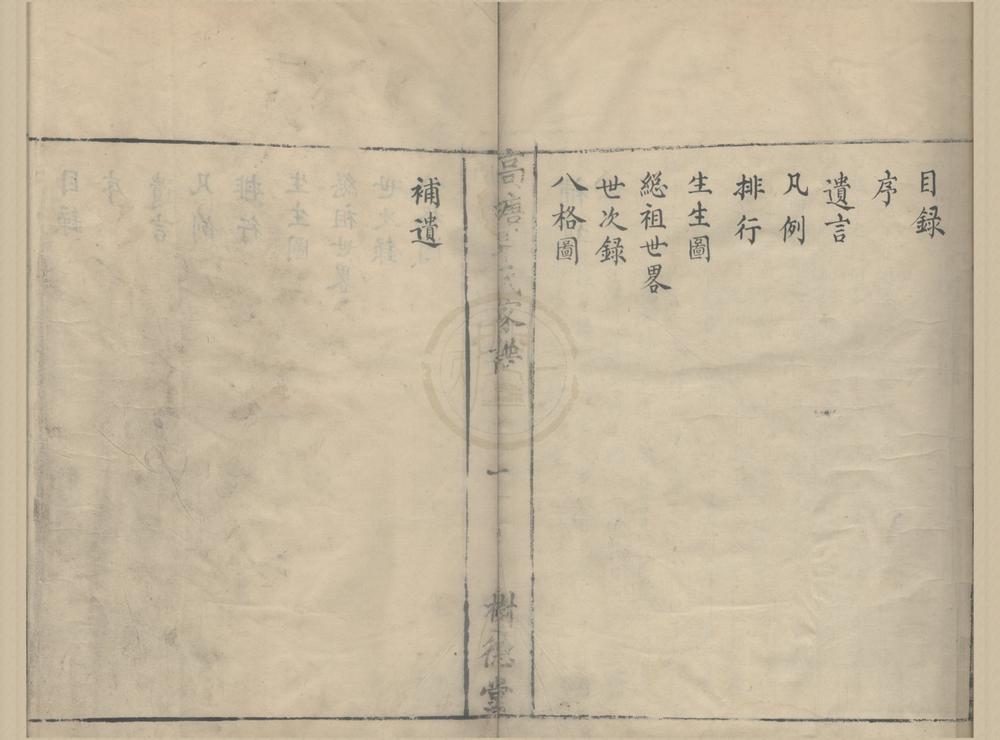 目録
序
遺言
凡例
排行
生生圖
緫祖世畧
世次録
八格圖
高塘 氏家譜
一
樹德堂
補遺